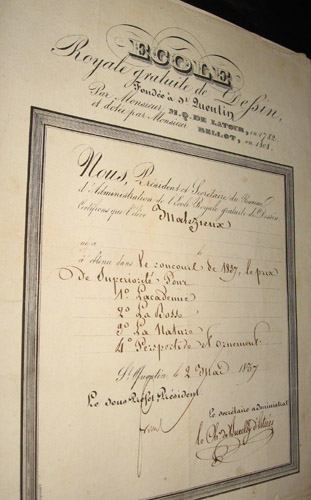 ECOLE
Royale gratuite de Dessin,
Fondée à St. Quentin
Par Monsieur M. Q. DE LATOUR, en 1782.
et dotée par Monsieur BELLOT, en 1801.
Nous, Président et Secrétaire du Bureau
d'Administration de l'École Royale gratuite de Dessin
Certifions que l'élève Malezieux
né à
à obtenu dans le concours de 1837, le prix
De Supériorité Pour
1º L'academie
2º La Bosse
3º La Nature
4º Perspective et ornement
St Quentin le 2 Mai 1837
Le sous Préfet Président
Le secrétaire administrat